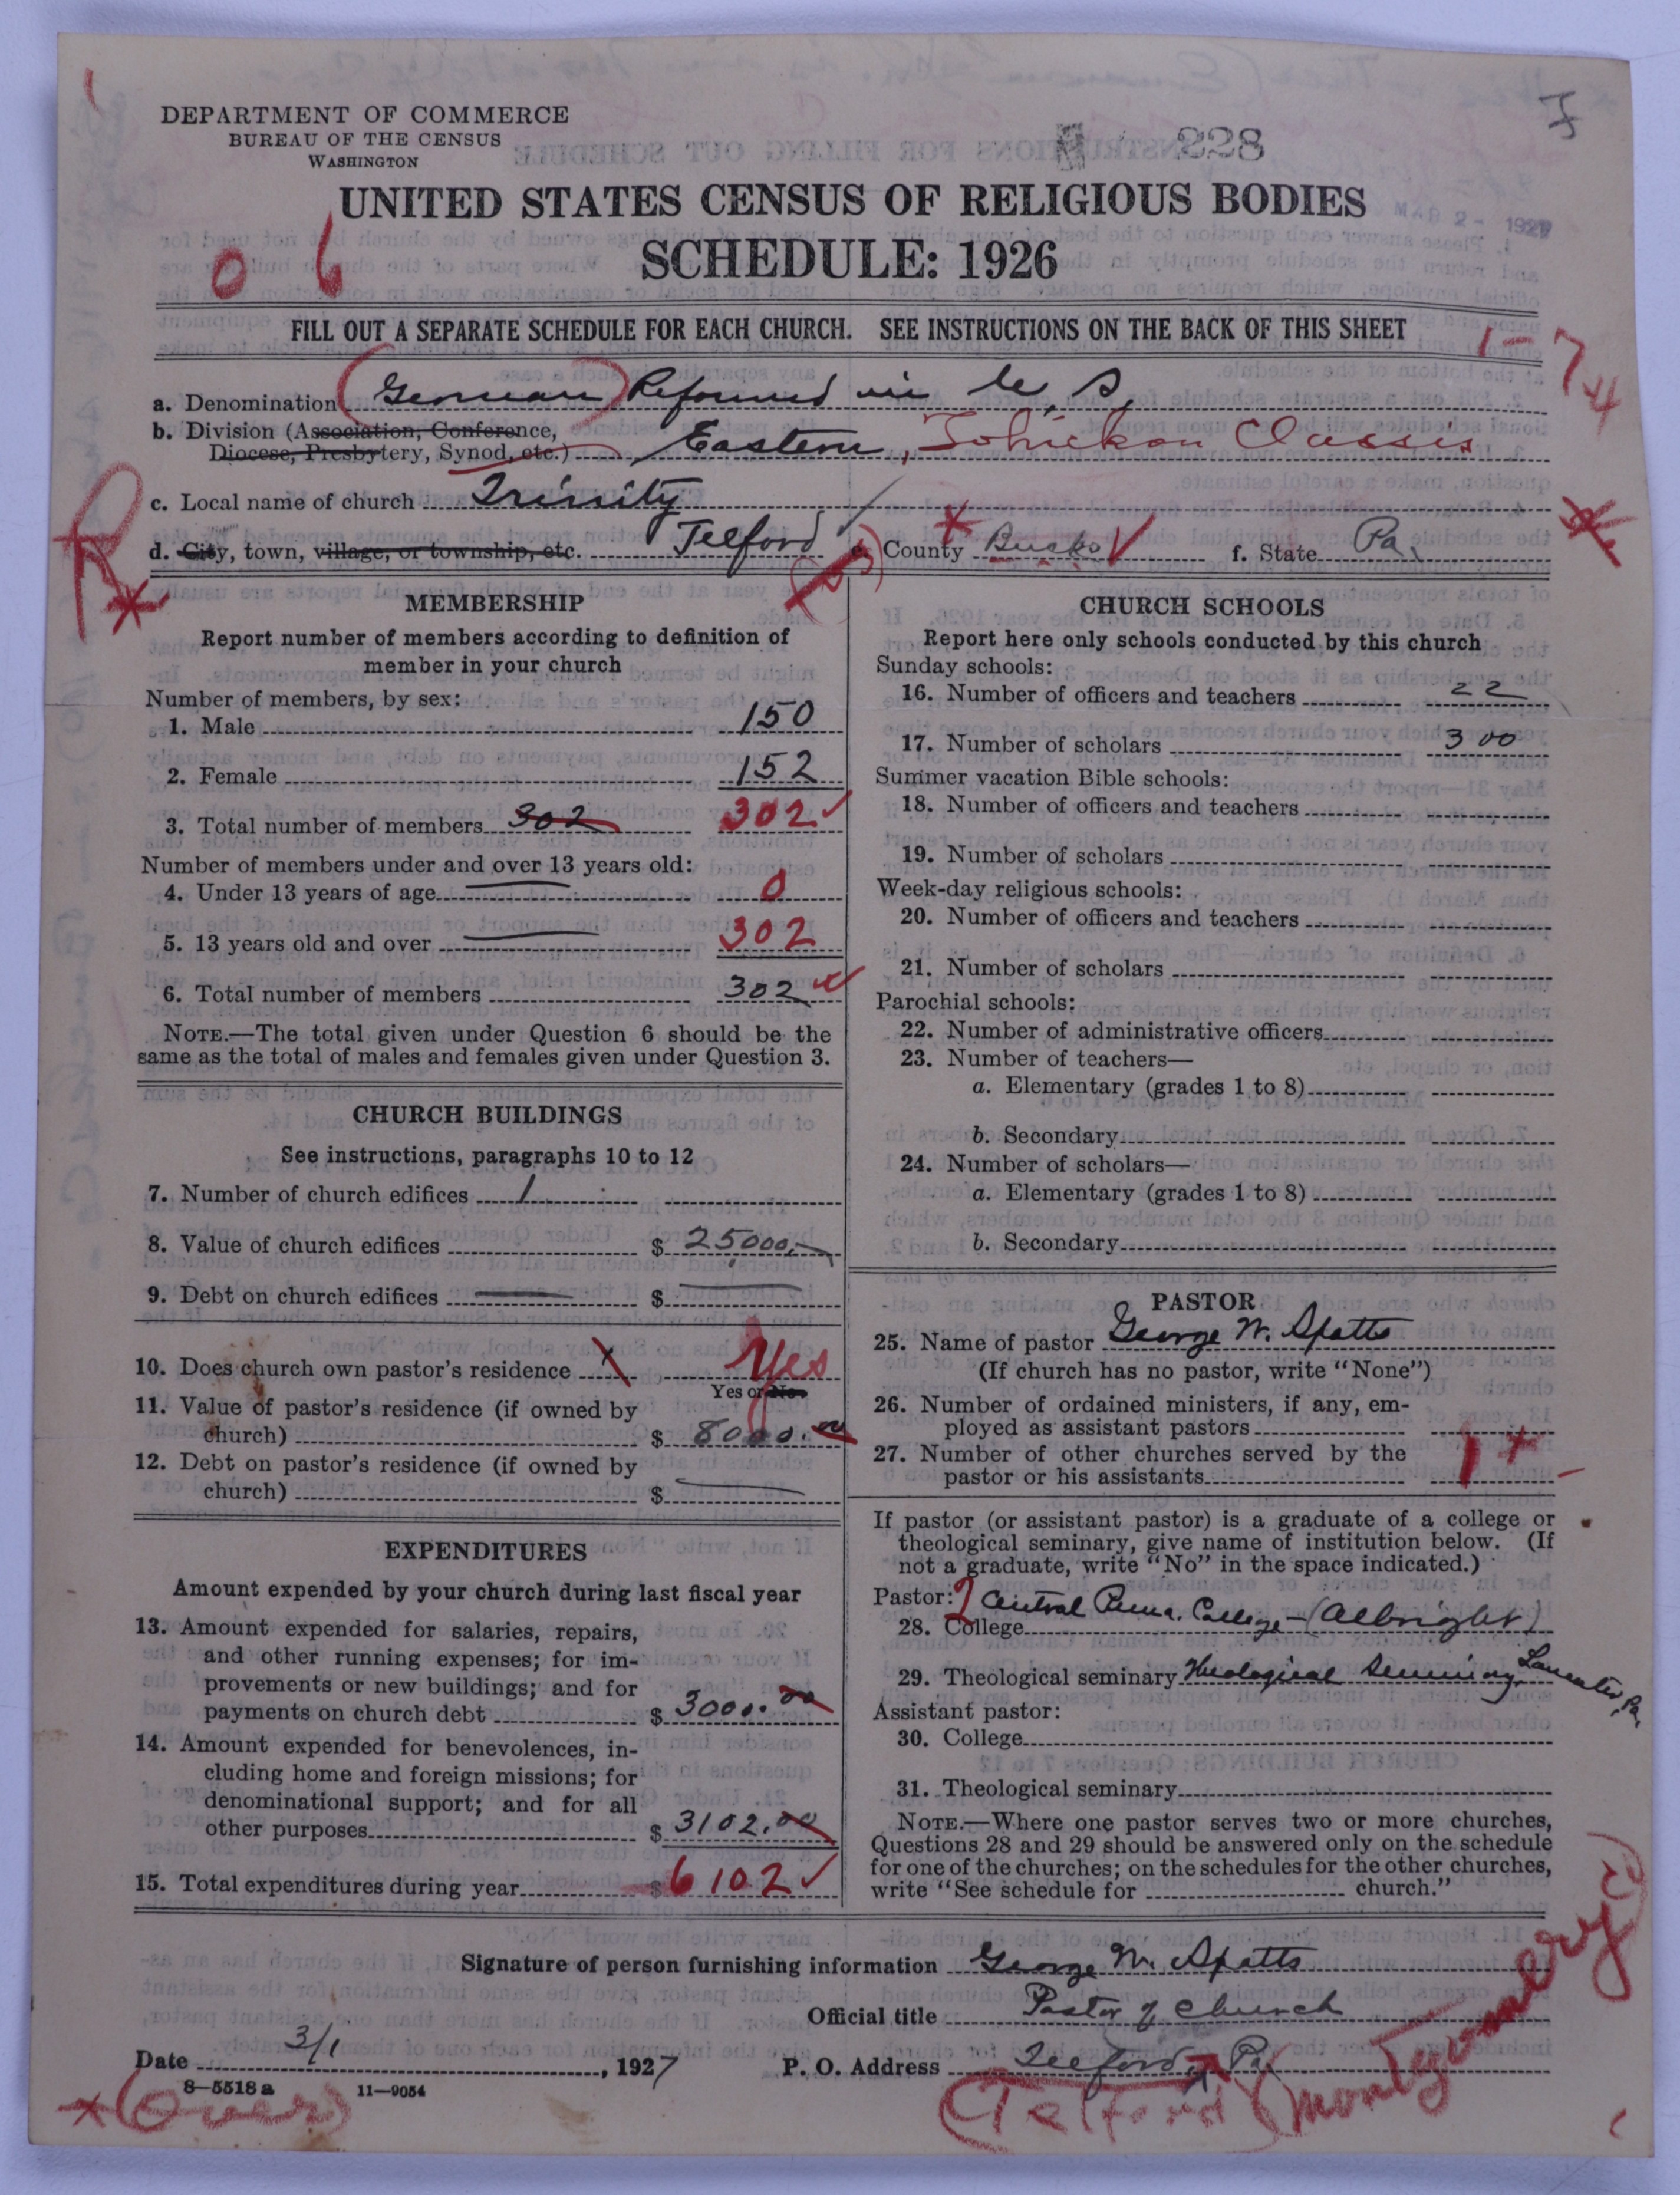 DEPARTMENT OF COMMERCE
BUREAU OF THE CENSUS
WASHINGTON
228
MAR 2 - 1927
UNITED STATES CENSUS OF RELIGIOUS BODIES
SCHEDULE: 1926
0 6
FILL OUT A SEPARATE SCHEDULE FOR EACH CHURCH. SEE INSTRUCTIONS ON THE BACK OF THIS SHEET
1-74
a. Denomination (German) Reformed in U. S.
b. Division (Association, Conference,
Diocese, Presbytery, Synod, etc.) Eastern, Tohickon Classis
c. Local name of church Trinity
d. City, town, village, or township, etc. Telford e. County Bucks f. State Pa.
MEMBERSHIP
Report number of members according to definition of
member in your church
Number of members, by sex:
1. Male 150
2. Female 152
3. Total number of members 302 302
Number of members under and over 13 years old:
4. Under 13 years of age 0
5. 13 years old and over 302
6. Total number of members 302
NOTE.—The total given under Question 6 should be the
same as the total of males and females given under Question 3.
CHURCH BUILDINGS
See instructions, paragraphs 10 to 12
7. Number of church edifices 1
8. Value of church edifices $ 25000.
9. Debt on church edifices $
10. Does church own pastor's residence Yes
Yes or No
11. Value of pastor's residence (if owned by
church) $ 8000.00
12. Debt on pastor's residence (if owned by
church) $
EXPENDITURES
Amount expended by your church during last fiscal year
13. Amount expended for salaries, repairs,
and other running expenses; for im-
provements or new buildings; and for
payments on church debt $ 3000.00
14. Amount expended for benevolences, in-
cluding home and foreign missions; for
denominational support; and for all
other purposes $ 3102.00
15. Total expenditures during year $ 6102
CHURCH SCHOOLS
Report here only schools conducted by this church
Sunday schools:
16. Number of officers and teachers 22
17. Number of scholars 300
Summer vacation Bible schools:
18. Number of officers and teachers
19. Number of scholars
Week-day religious schools:
20. Number of officers and teachers
21. Number of scholars
Parochial schools:
22. Number of administrative officers
23. Number of teachers—
a. Elementary (grades 1 to 8)
b. Secondary
24. Number of scholars—
a. Elementary (grades 1 to 8)
b. Secondary
PASTOR
25. Name of pastor George W. Spotts
(If church has no pastor, write "None")
26. Number of ordained ministers, if any, em-
ployed as assistant pastors
27. Number of other churches served by the
pastor or his assistants 1
If pastor (or assistant pastor) is a graduate of a college or
theological seminary, give name of institution below. (If
not a graduate, write "No" in the space indicated.)
Pastor:
28. College Central Penna. College - (Albright)
29. Theological seminary Theological Seminary, Lancaster, Pa.
Assistant pastor:
30. College
31. Theological seminary
NOTE.—Where one pastor serves two or more churches,
Questions 28 and 29 should be answered only on the schedule
for one of the churches; on the schedules for the other churches,
write "See schedule for church."
Signature of person furnishing information George W. Spotts
Official title Pastor of Church
Date 3/1, 1927 P. O. Address Telford, Pa.
8—5518a 11—9054
(Over) (Telford) (Montgomery Co)